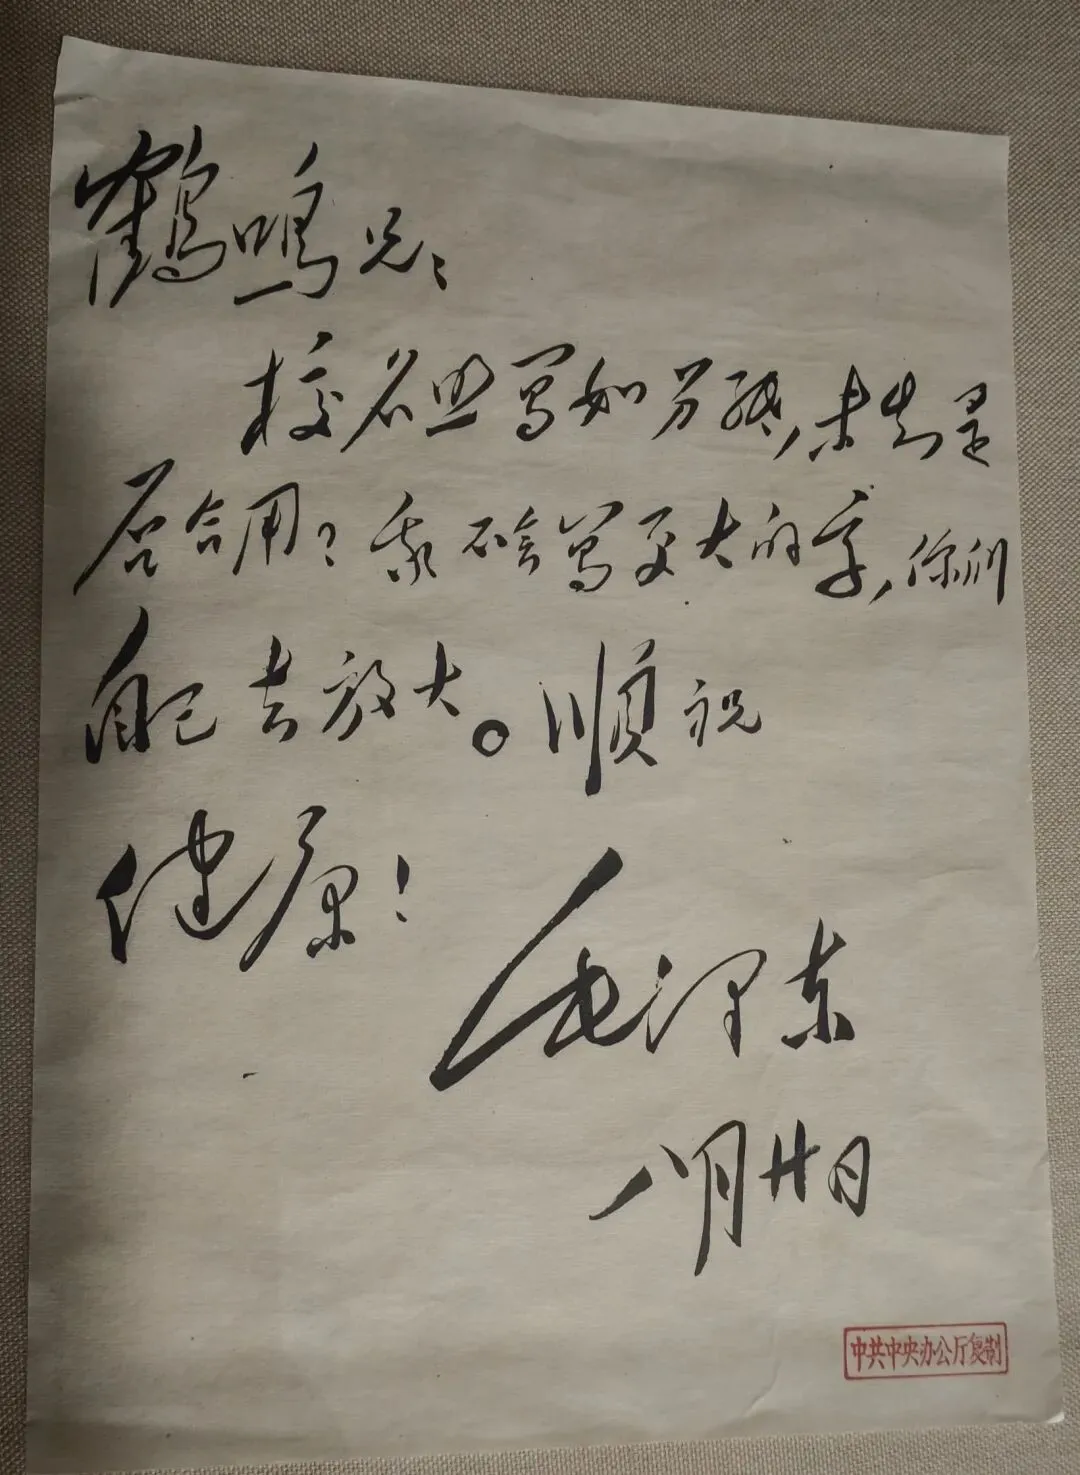 鶴鳴兄：
校名照寫如另紙，未知是
否合用？我不會寫更大的字，你们
自己去放大。順祝
健康！
毛澤东
八月廿日
中共中央办公厅复制